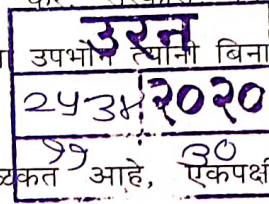 उरन
उपभोग त्यांनी बिना
२५३४ २०२०
११ ३०
ळकत आहे, एकपक्षी